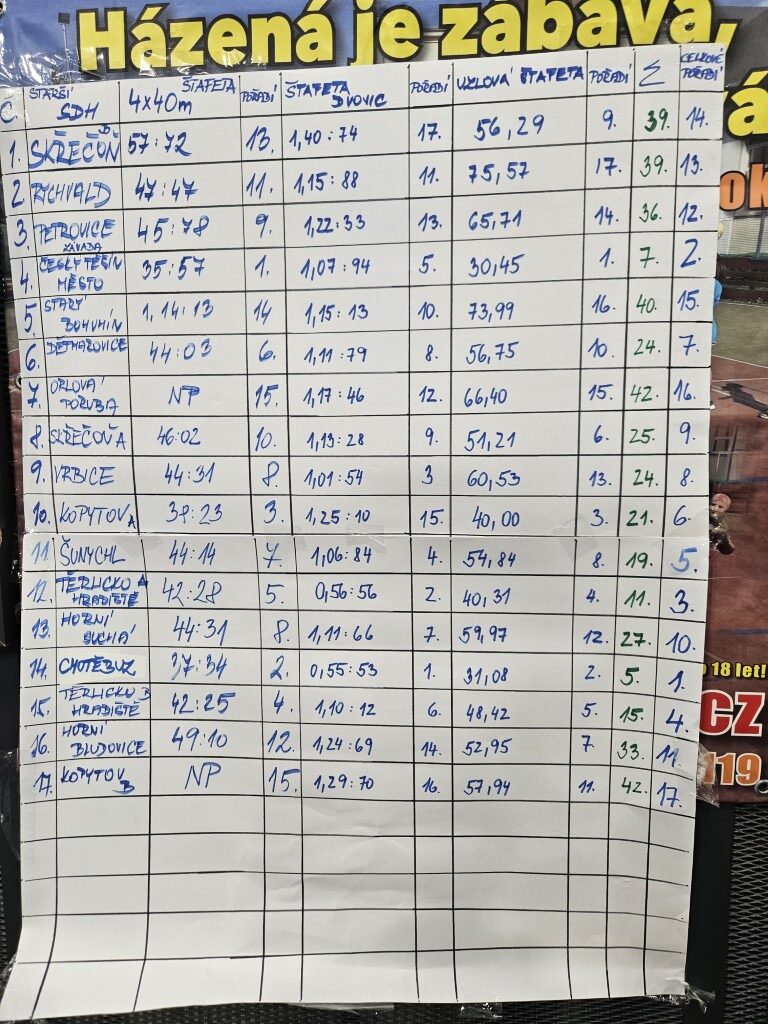 Házená je zábava,
Č. STARŠÍ SDH 4x40m ŠTAFETA POŘADÍ ŠTAFETA DVOJIC POŘADÍ UZLOVÁ ŠTAFETA POŘADÍ Σ CELKOVÉ POŘADÍ
1. SKŘEČOŇ B 57:72 13. 1,40:74 17. 56,29 9. 39. 14.
2 RYCHVALD 47:47 11. 1,15:88 11. 75,57 17. 39. 13.
3. PETROVICE ZÁVADA 45:78 9. 1,22:33 13. 65,71 14. 36. 12.
4. ČESKÝ TĚŠÍN MĚSTO 35:57 1. 1,07:94 5. 30,45 1. 7. 2.
5. STARÝ BOHUMÍN 1,14:13 14 1,15:13 10. 73,99 16. 40. 15.
6. DĚTMAROVICE 44:03 6. 1,11:79 8. 56,75 10. 24. 7.
7. ORLOVÁ PORUBA NP 15. 1,17:46 12. 66,40 15. 42. 16.
8. SKŘEČOŇ A 46:02 10. 1,13:28 9. 51,21 6. 25. 9.
9. VRBICE 44:31 8. 1,01:54 3 60,53 13. 24. 8.
10. KOPYTOV A 38:23 3. 1,25:10 15. 40,00 3. 21. 6.
11 ŠUNYCHL 44:14 7. 1,06:84 4. 54,84 8. 19. 5.
12. TĚRLICKO A HRADIŠTĚ 42:28 5. 0,56:56 2. 40,31 4. 11. 3.
13. HORNÍ SUCHÁ 44:31 8. 1,11:66 7. 59,97 12. 27. 10.
14. CHOTĚBUZ 37:34 2. 0,55:53 1. 31,08 2. 5. 1.
15. TĚRLICKO B HRADIŠTĚ 42:25 4. 1,10:12 6. 48,42 5. 15. 4.
16. HORNÍ BLUDOVICE 49:10 12. 1,24:69 14. 52,95 7 33. 11.
17. KOPYTOV B NP 15. 1,29:70 16. 57,94 11. 42. 17.
18 let!
CZ
119